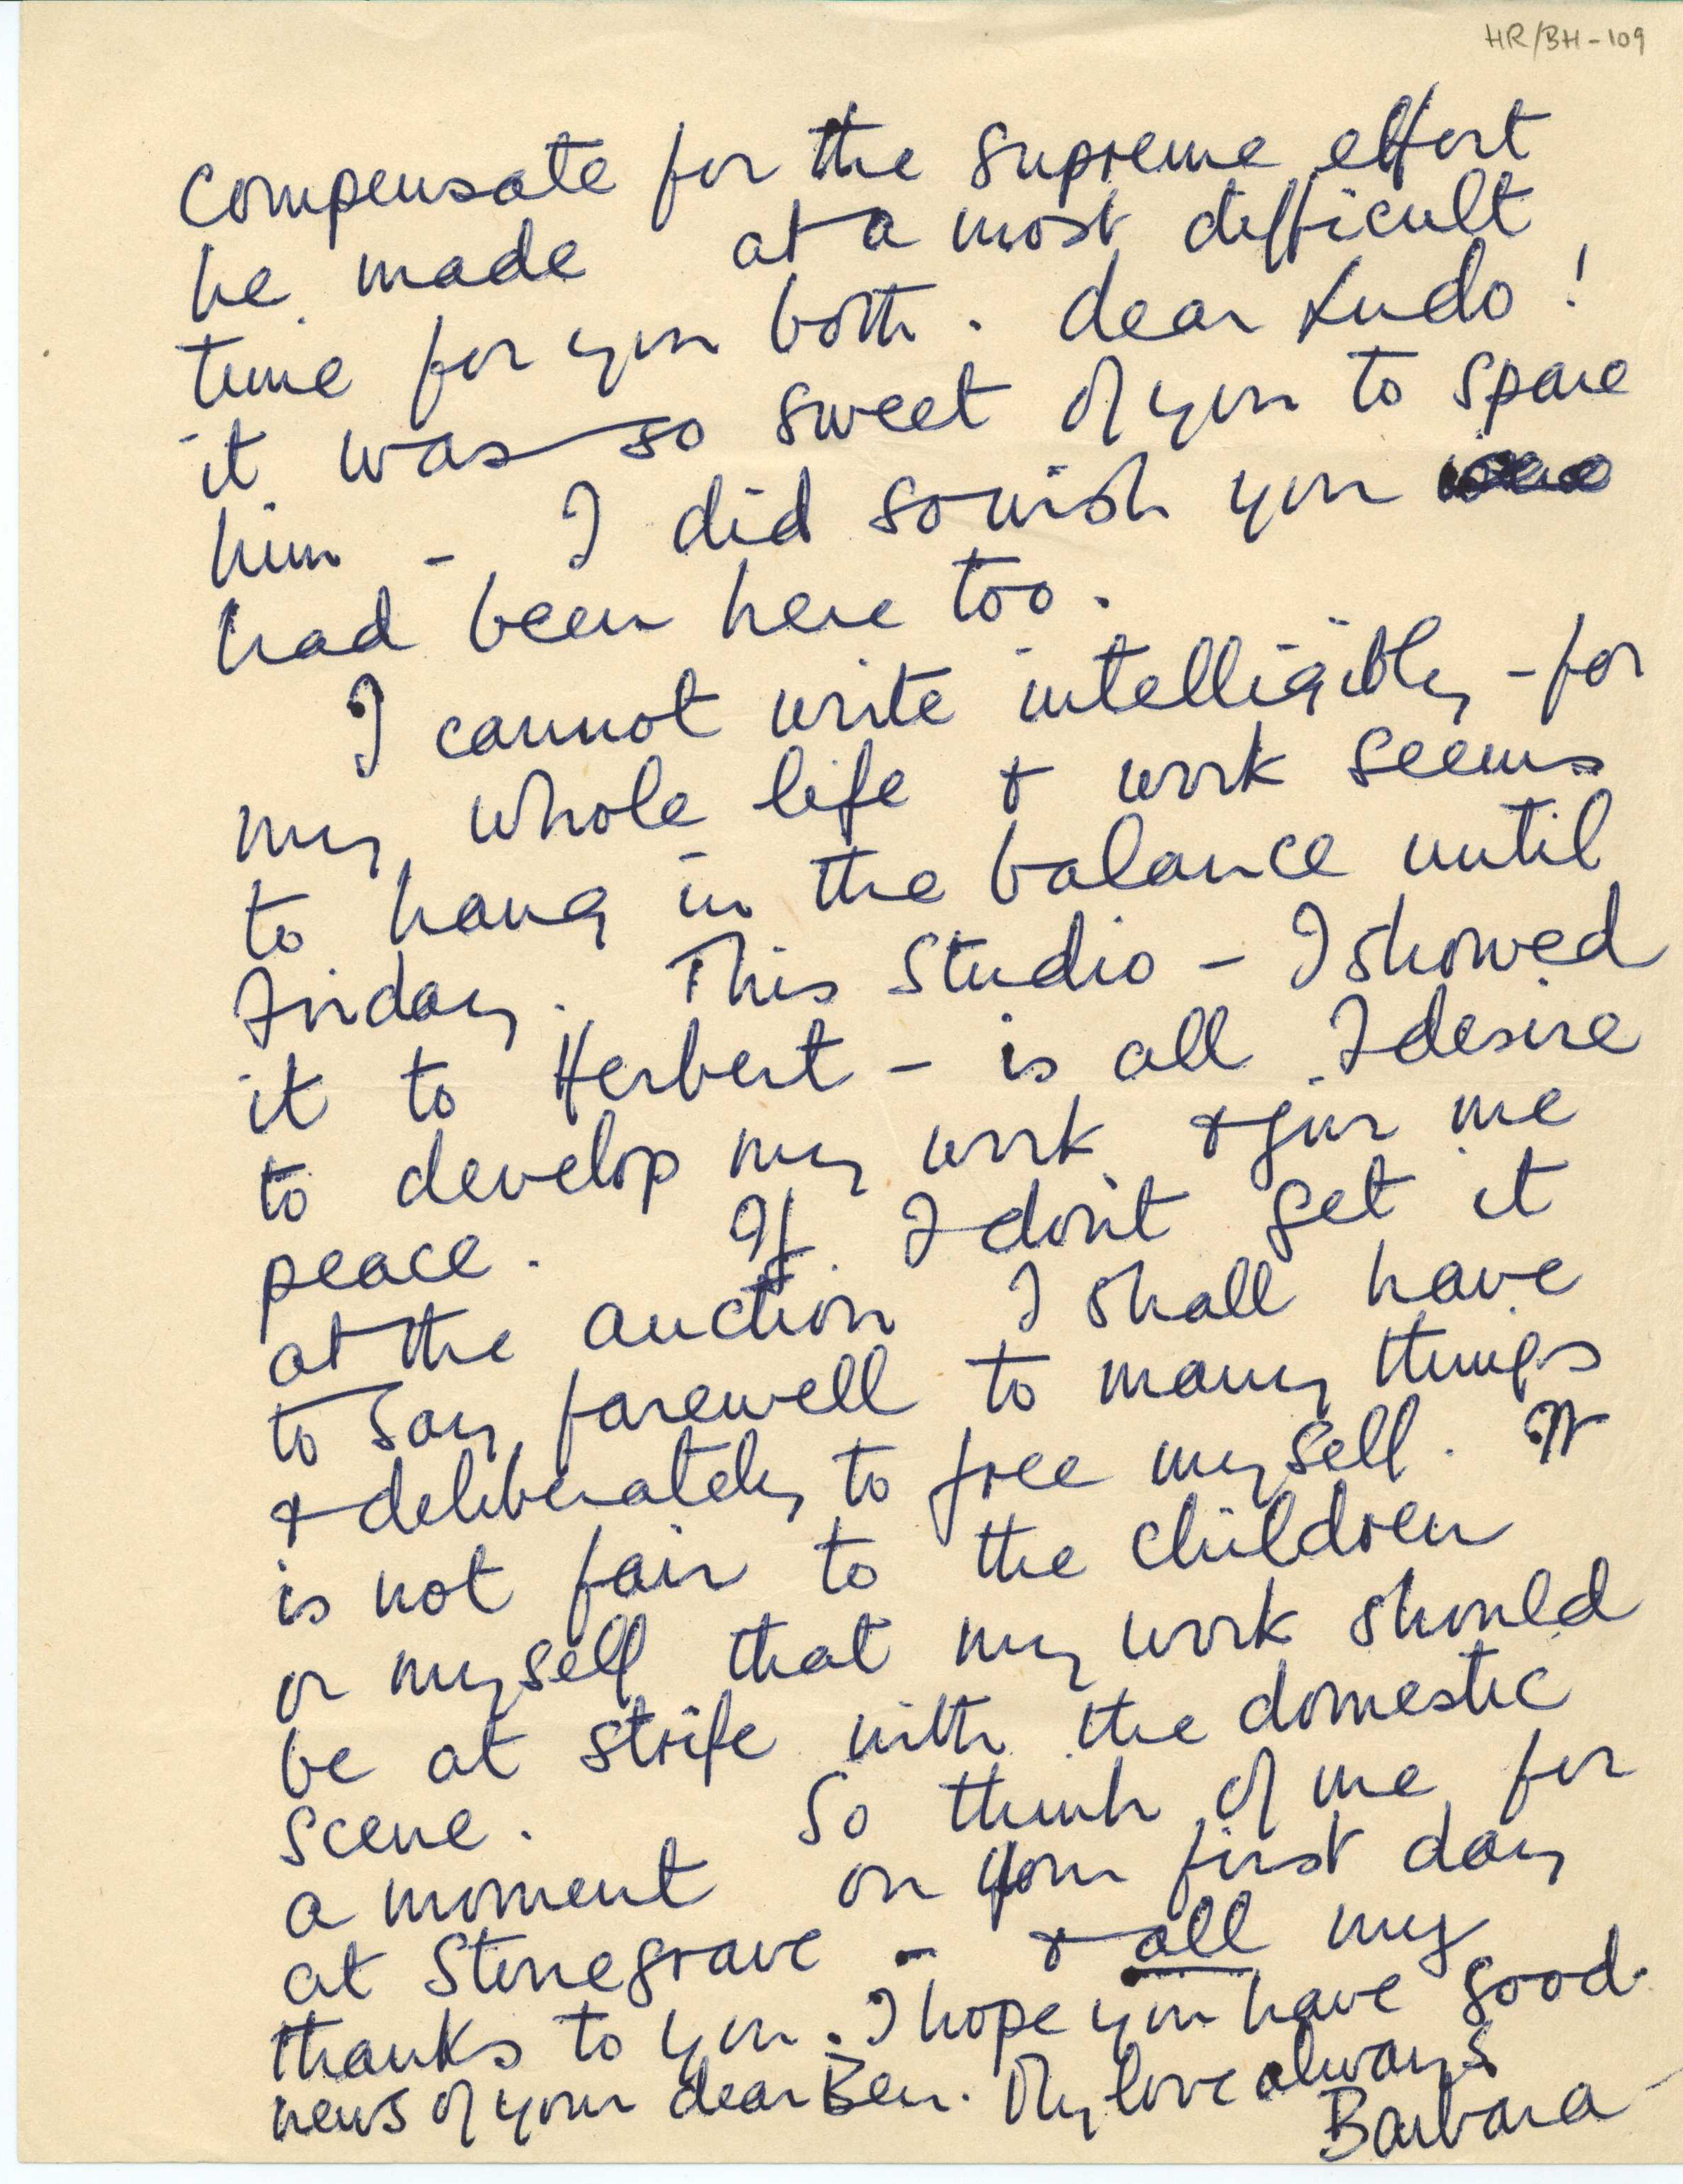 HR/BH-109
compensate for the supreme effort
he made at a most difficult
time for you both. dear Ludo!
it was so sweet of you to spare
him - I did so wish you
had been here too.
I cannot write intelligibly - for
my whole life & work seems
to hang in the balance until
Friday. This Studio - I showed
it to Herbert - is all I desire
to develop my work & give me
peace. If I don't get it
at the auction I shall have
to say farewell to many things
& deliberately to free myself. It
is not fair to the children
or myself that my work should
be at strife with the domestic
scene. So think of me for
a moment on your first day
at Stonegrave - & all my
thanks to you. I hope you have good
news of your dear Ben. My love always
Barbara